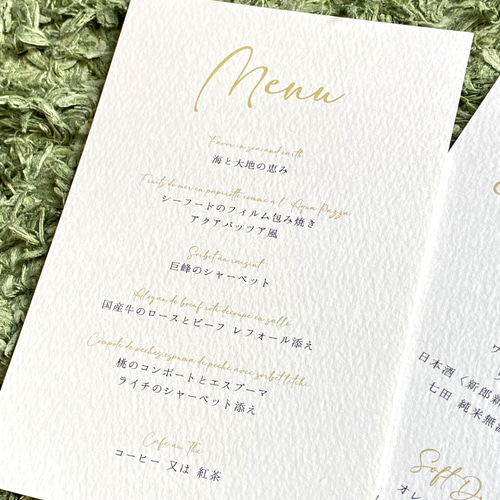 Menu
Favor in sea and earth
海と大地の恵み
Fruits de mer en papillotte comme a l' Aqua Pazza
シーフードのフィルム包み焼き
アクアパッツア風
Sorbet au raisin
巨峰のシャーベット
国産牛のロースとビーフ レフォール添え
Compote de peches
桃のコンポートとエスプーマ
ライチのシャーベット添え
Cafe au the
コーヒー 又は 紅茶
日本酒く新郎新
七田 純米無
Soft D
オレ